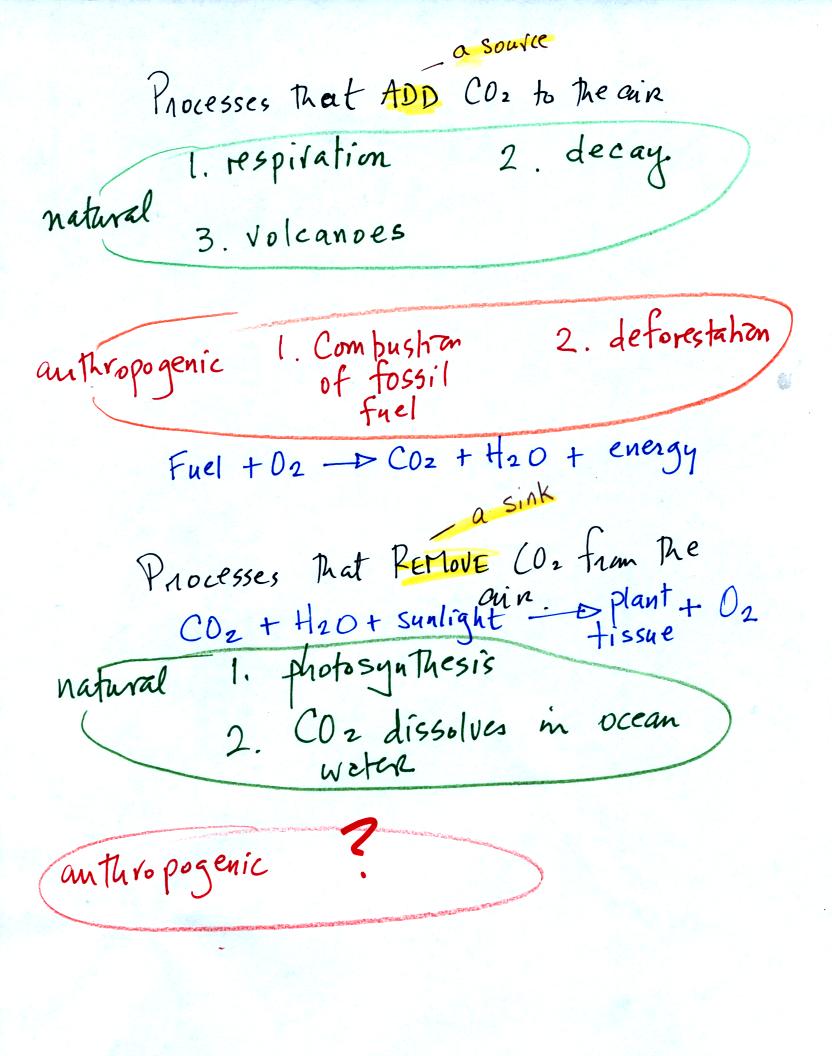 a source
Processes that ADD CO2 to the air
1. respiration 2. decay
natural
3. volcanoes
anthropogenic 1. Combustion 2. deforestation
of fossil
fuel
Fuel + O2 → CO2 + H2O + energy
a sink
Processes that REMOVE CO2 from the
air.
CO2 + H2O + sunlight → plant + O2
tissue
natural 1. photosynthesis
2. CO2 dissolves in ocean
water
anthropogenic ?